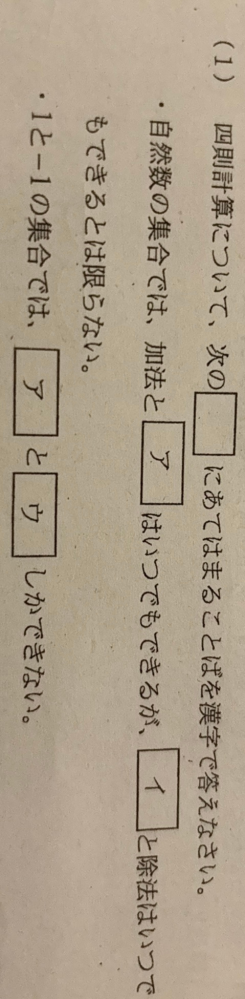 (1) 四則計算について、次の□にあてはまることばを漢字で答えなさい。
・自然数の集合では、加法と ア はいつでもできるが、 イ と除法はいつで
もできるとは限らない。
・1と-1の集合では、 ア と ウ しかできない。